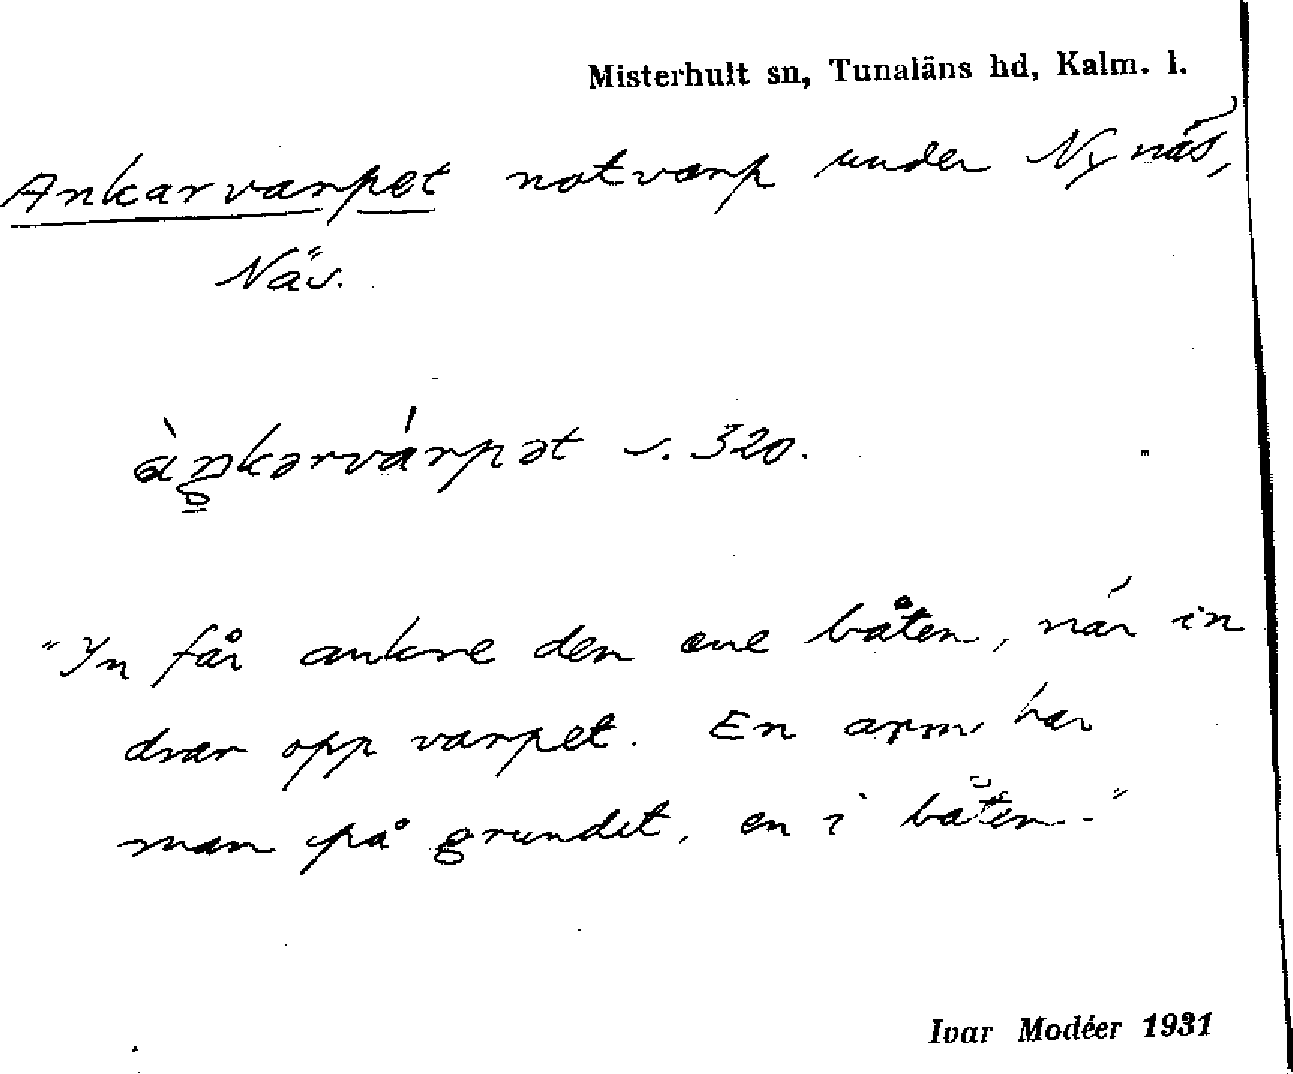 Misterhult sn, Tunaläns hd, Kalm. l.
Ankarvarpet notvarp under Nynäs,
Näs.
àŋkərvárpət s. 320.
"Yn får ankre den ene båten, när in
drar opp varpet. En arm har
man på grundet, en i båten."
Ivar Modéer 1931